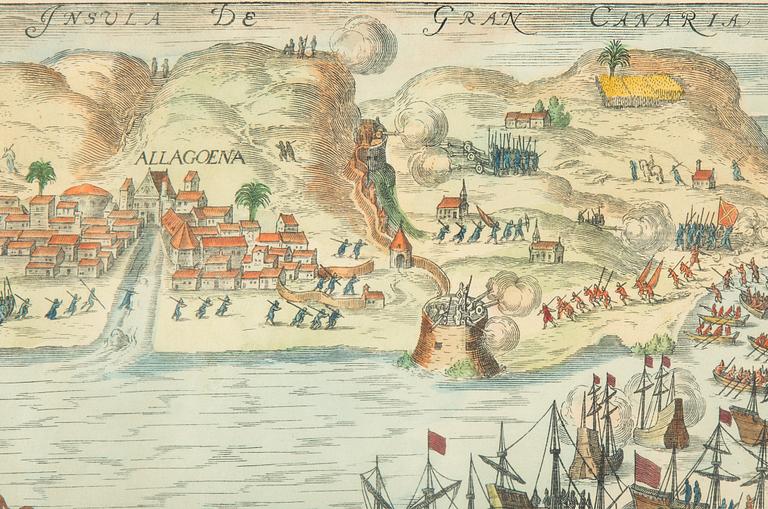 JNSULA DE GRAN CANARIA
ALLAGOENA